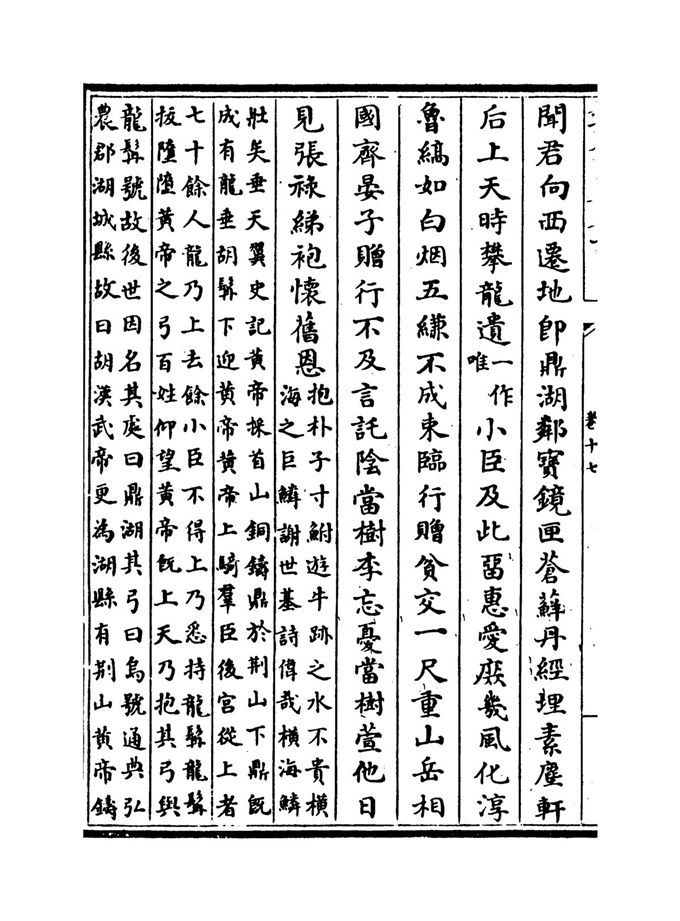 聞君向西遷地即鼎湖鄰寳鏡匣蒼蘚丹經埋素塵軒
后上天時攀龍遺一作唯小臣及此留惠愛庶幾風化淳
魯縞如白烟五縑不成束臨行贈貧交一尺重山岳相
國齊晏子贈行不及言託陰當樹李忘憂當樹萱他日
見張祿綈袍懷舊恩抱朴子寸鮒遊牛跡之水不貴橫
海之巨鱗謝世基詩偉哉橫海鱗
壯矣垂天翼史記黄帝採首山銅鑄鼎於荆山下鼎既
成有龍垂胡髯下迎黄帝黄帝上騎羣臣後宫從上者
七十餘人龍乃上去餘小臣不得上乃悉持龍髯龍髯
拔墮墮黄帝之弓百姓仰望黄帝既上天乃抱其弓與
龍髯號故後世因名其處曰鼎湖其弓曰烏號通典弘
農郡湖城縣故曰胡漢武帝更為湖縣有荆山黄帝鑄
卷十七